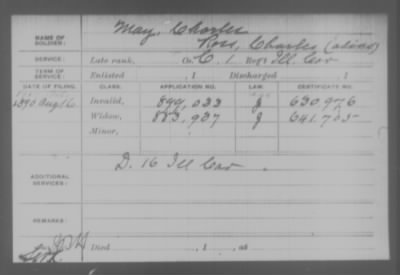 NAME OF SOLDIER: May, Charles
Ross, Charles (alias)
SERVICE: Late rank, Co. C. 1 Reg't Ill Cav
TERM OF SERVICE: Enlisted , 1 Discharged , 1
DATE OF FILING. CLASS. APPLICATION NO. LAW. CERTIFICATE NO.
1890 Aug 16 Invalid, 899,033 J 630,976
Widow, 883,937 J
Minor,
ADDITIONAL SERVICES: D. 16 Ill Cav
REMARKS:
Died , 1 , at